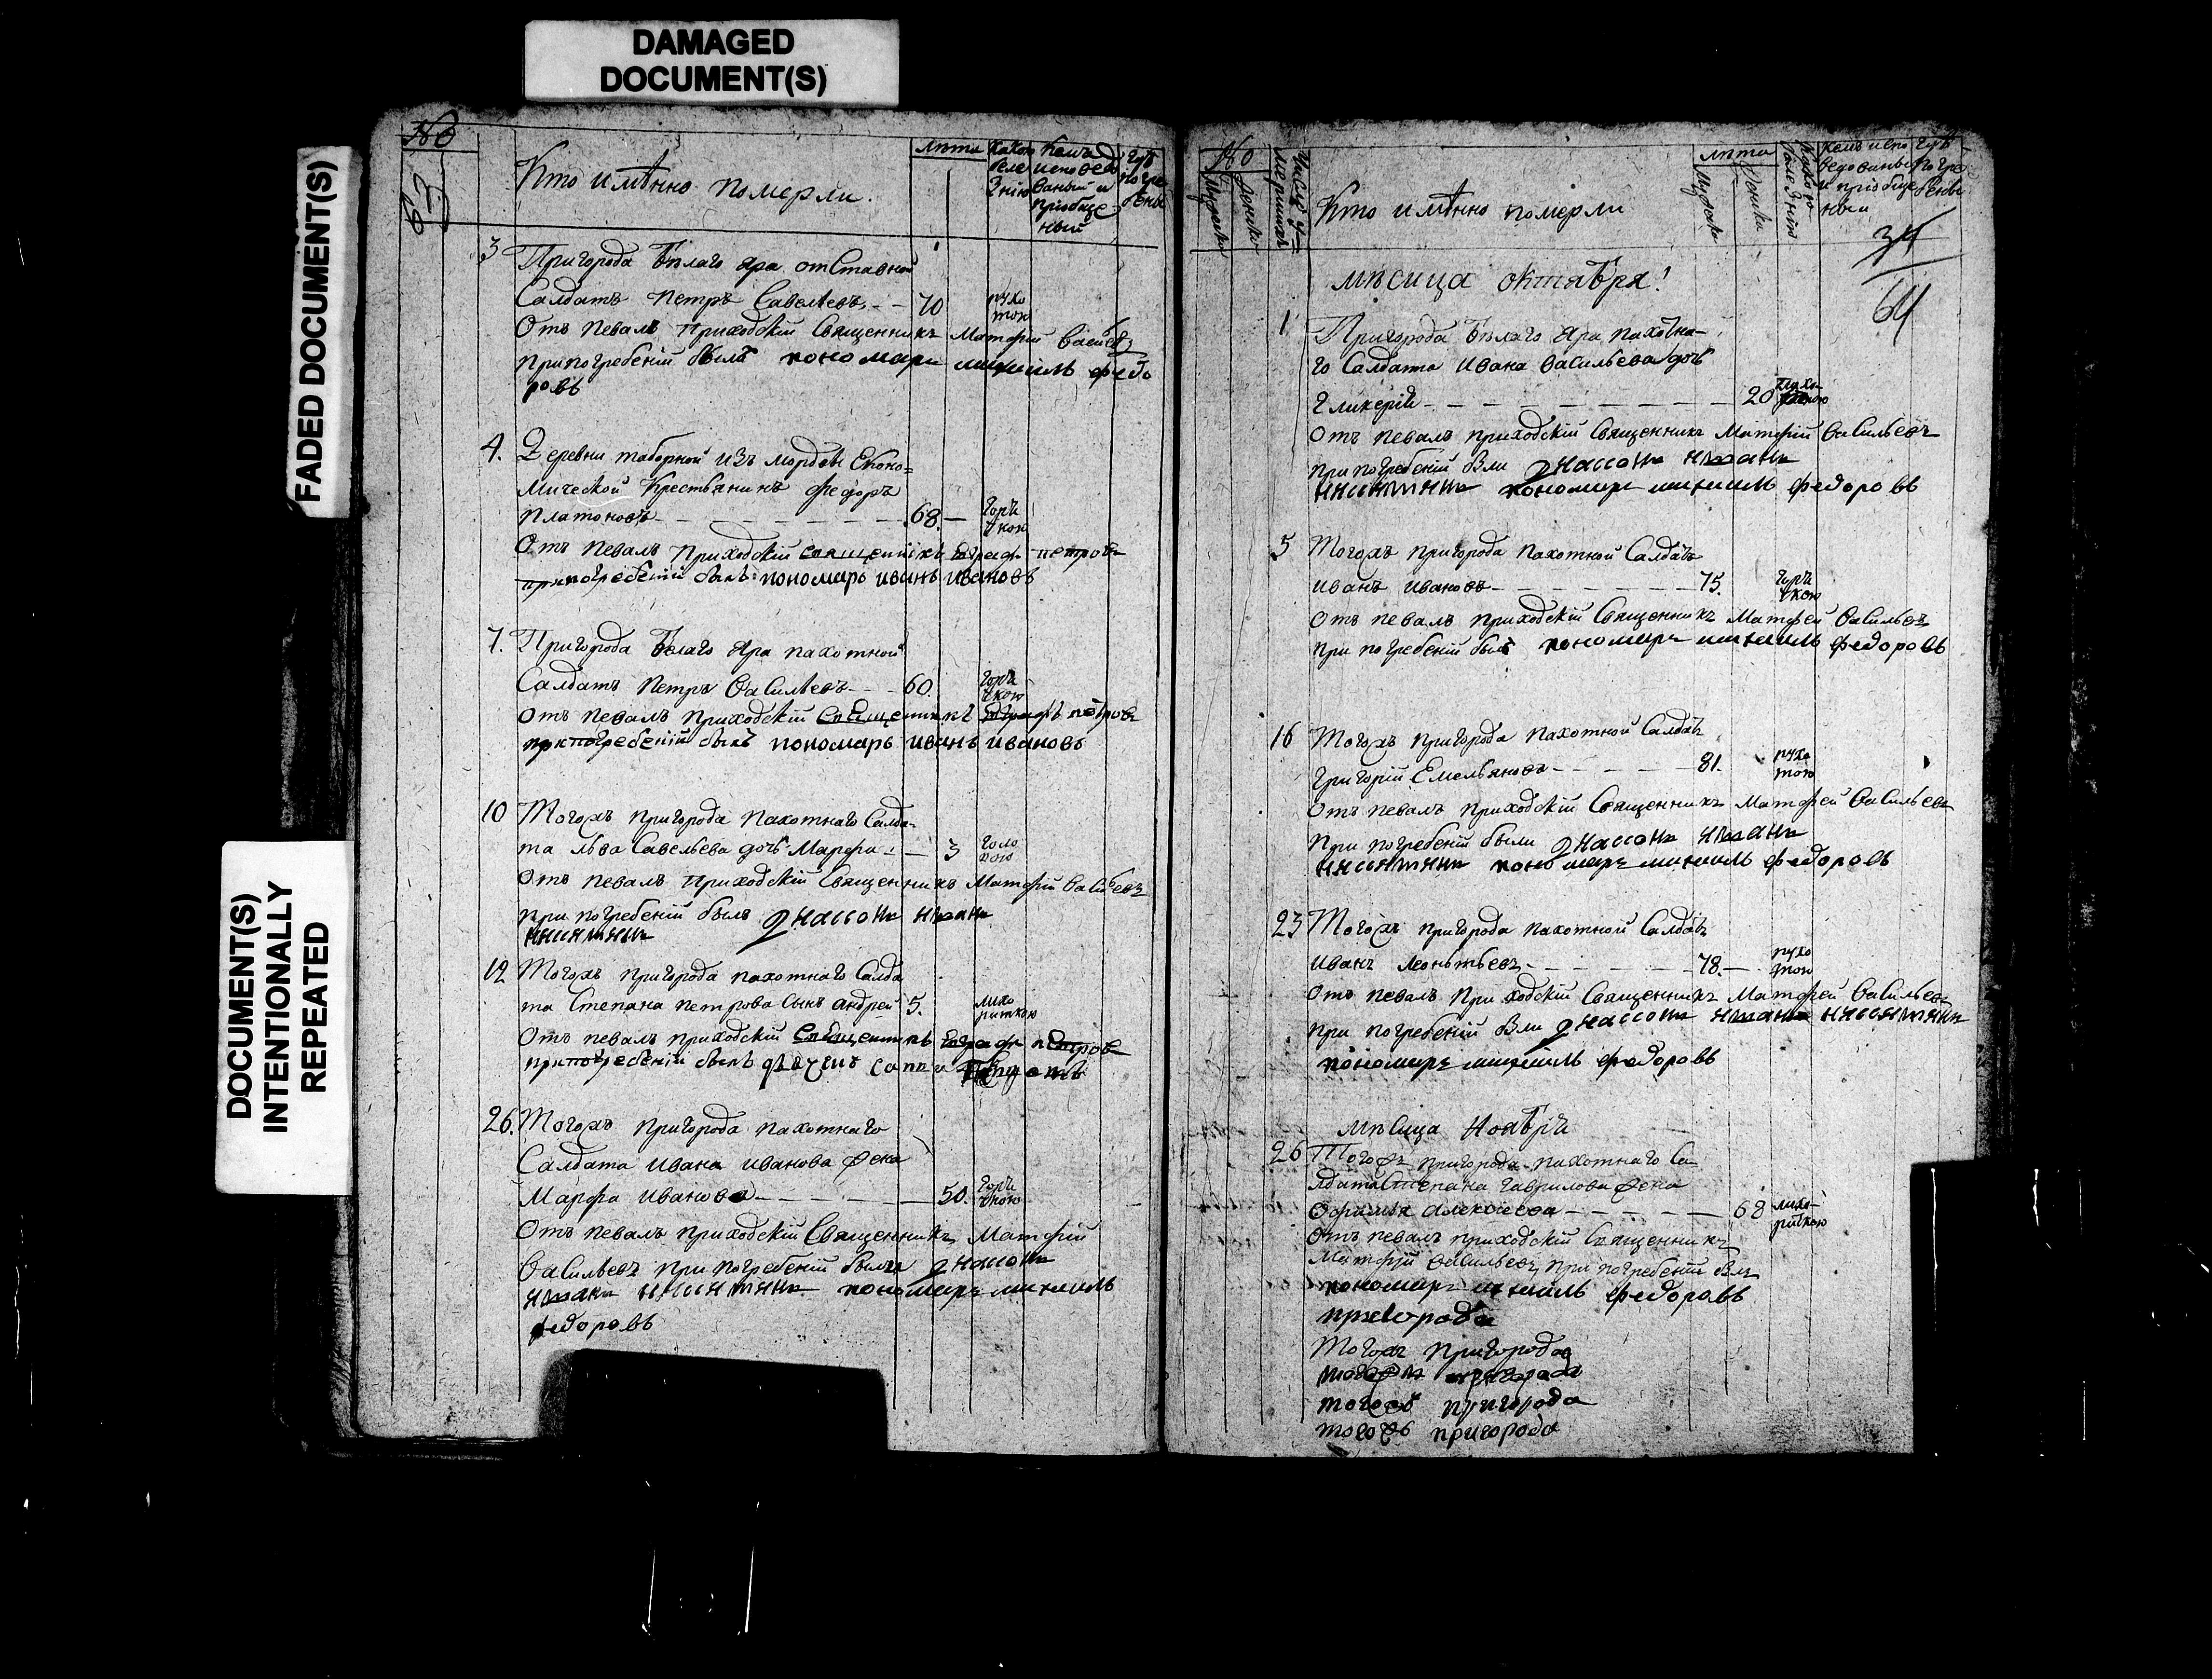 DAMAGED
DOCUMENT(S)
FADED DOCUMENT(S)
DOCUMENT(S)
INTENTIONALLY
REPEATED
№
63
Кто имѣнно померли.
лѣта
какою
боле
знію
кемъ
исповеда
ваныи и
приобще
ныи
гдѣ
погре
бены
3 Пригорода Бѣлаго Яра отставной
Салдатъ Петръ Савелѣевъ 70 пухо
тою
Отъ певалъ приходскій Священникъ Матфій Васильевъ
при погребеній былъ пономарь михаилъ федо
ровъ
4. Деревни таборной изъ мордвы Еконо=
мической Крестьянинъ Федоръ
Платоновъ 68. горя
чкою
Отъ певалъ приходскій священникъ петровъ
при погребеній былъ пономарь иванъ ивановъ
7. Пригорода Белаго Яра пахотной
Салдатъ Петръ Васильевъ 60. горя
чкою
Отъ певалъ приходскій священникъ петровъ
при погребеній былъ пономарь иванъ ивановъ
10 Тогожъ пригорода пахотнаго Салда-
та льва Савельева дочь Марфа 3
Отъ певалъ приходскій Священникъ Матфій Васильевъ
при погребеній былъ
12 Тогожъ пригорода пахотнаго Салда
та Степана петрова сынъ андрей 5. лихо
раткою
Отъ певалъ приходскій священникъ петровъ
при погребеній былъ
26. Тогожъ пригорода пахотнаго
Салдата ивана иванова жена
Марфа иванова 50. горя
чкою
Отъ певалъ приходскій Священникъ Матфій
Васильевъ при погребеній были
пономарь михаилъ
федоровъ
№
Мужеска
Женска
Число у
мершихъ
Кто имѣнно померли
лѣта
Мужска
Женска
какою
болезнію
кемъ испо
ведованы
и приобще
ныи
гдѣ
погре
бены
34
64
мѣсица октября!
1 Пригорода Бѣлаго Яра пахотна-
го Салдата ивана Васильева дочь
Гликерія 20
Отъ певалъ приходскій Священникъ Матфій Васильевъ
при погребеній были
пономарь михаилъ федоровъ
5 Тогожъ пригорода пахотной Салдатъ
иванъ ивановъ 75. горя
чкою
Отъ певалъ приходскій Священникъ Матфей Васильевъ
при погребеній былъ пономарь михаилъ федоровъ
16 Тогожъ пригорода пахотной Салдатъ
Григорій Емельяновъ 81. пухо
тою
Отъ певалъ приходскій Священникъ Матфей Васильевъ
При погребеній были
пономарь михаилъ федоровъ
23 Тогожъ пригорода пахотной Салдатъ
иванъ леонтьевъ 78. пухо
тою
Отъ певалъ приходскій Священникъ Матфей Васильевъ
при погребеній были
пономарь михаилъ федоровъ
мѣсица Ноября
26 Тогожъ пригорода пахотнаго Са
лдата Степана гаврилова жена
алексеева 68 лихо
раткою
Отъ певалъ приходскій Священникъ
Матфій Васильевъ при погребеній былъ
пономарь михаилъ федоровъ
пригорода
Тогожъ пригорода
тогожъ пригорода
тогожъ пригорода
тогожъ пригорода